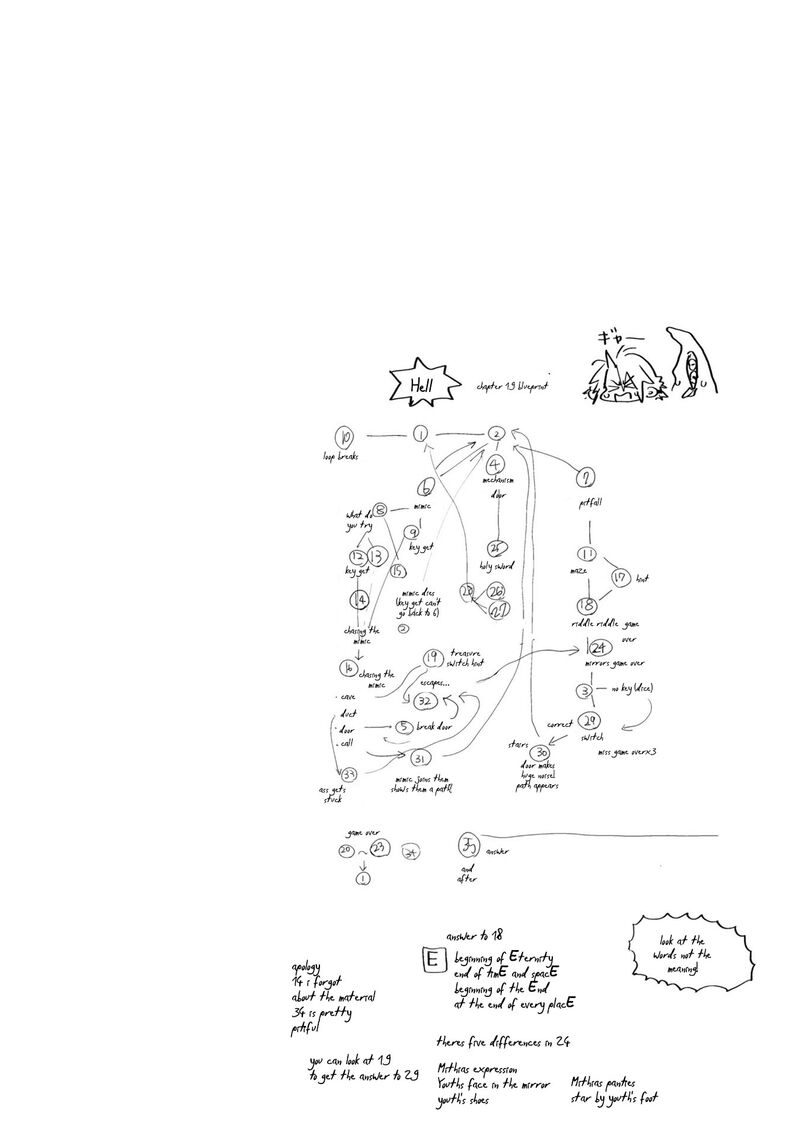 ギャー
Hell
chapter 19 blueprint
10
1
2
loop breaks
4
mechanism
door
7
pitfall
6
mimic
8
what do
you try
9
key get
12
13
key get
15
25
holy sword
11
maze
17
hint
14
mimic dies
(key get can't
go back to 6)
2
28
26
27
18
riddle riddle game
over
chasing the
mimic
24
mirrors game over
16
chasing the
mimic
19
treasure
switch hint
escapes...
32
3
no key (dice)
· cave
· duct
· door
· call
5
break door
29
switch
correct
miss game over×3
31
mimic joins them
shows them a path!
stairs
30
door makes
huge noise!
path appears
33
ass gets
stuck
game over
20
~
23
34
1
35
answer
and
after
look at the
words not the
meaning!
answer to 18
E
beginning of Eternity
end of timE and spacE
beginning of the End
at the end of every placE
apology
14 i forgot
about the material
34 is pretty
pitiful
theres five differences in 24
you can look at 19
to get the answer to 29
Mithias expression
Youths face in the mirror
youth's shoes
Mithias panties
star by youth's foot